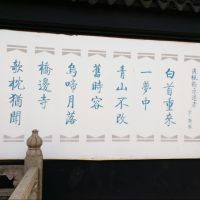 白首重來
一夢中
青山不改
舊時容
烏啼月落
橋邊寺
欹枕猶聞